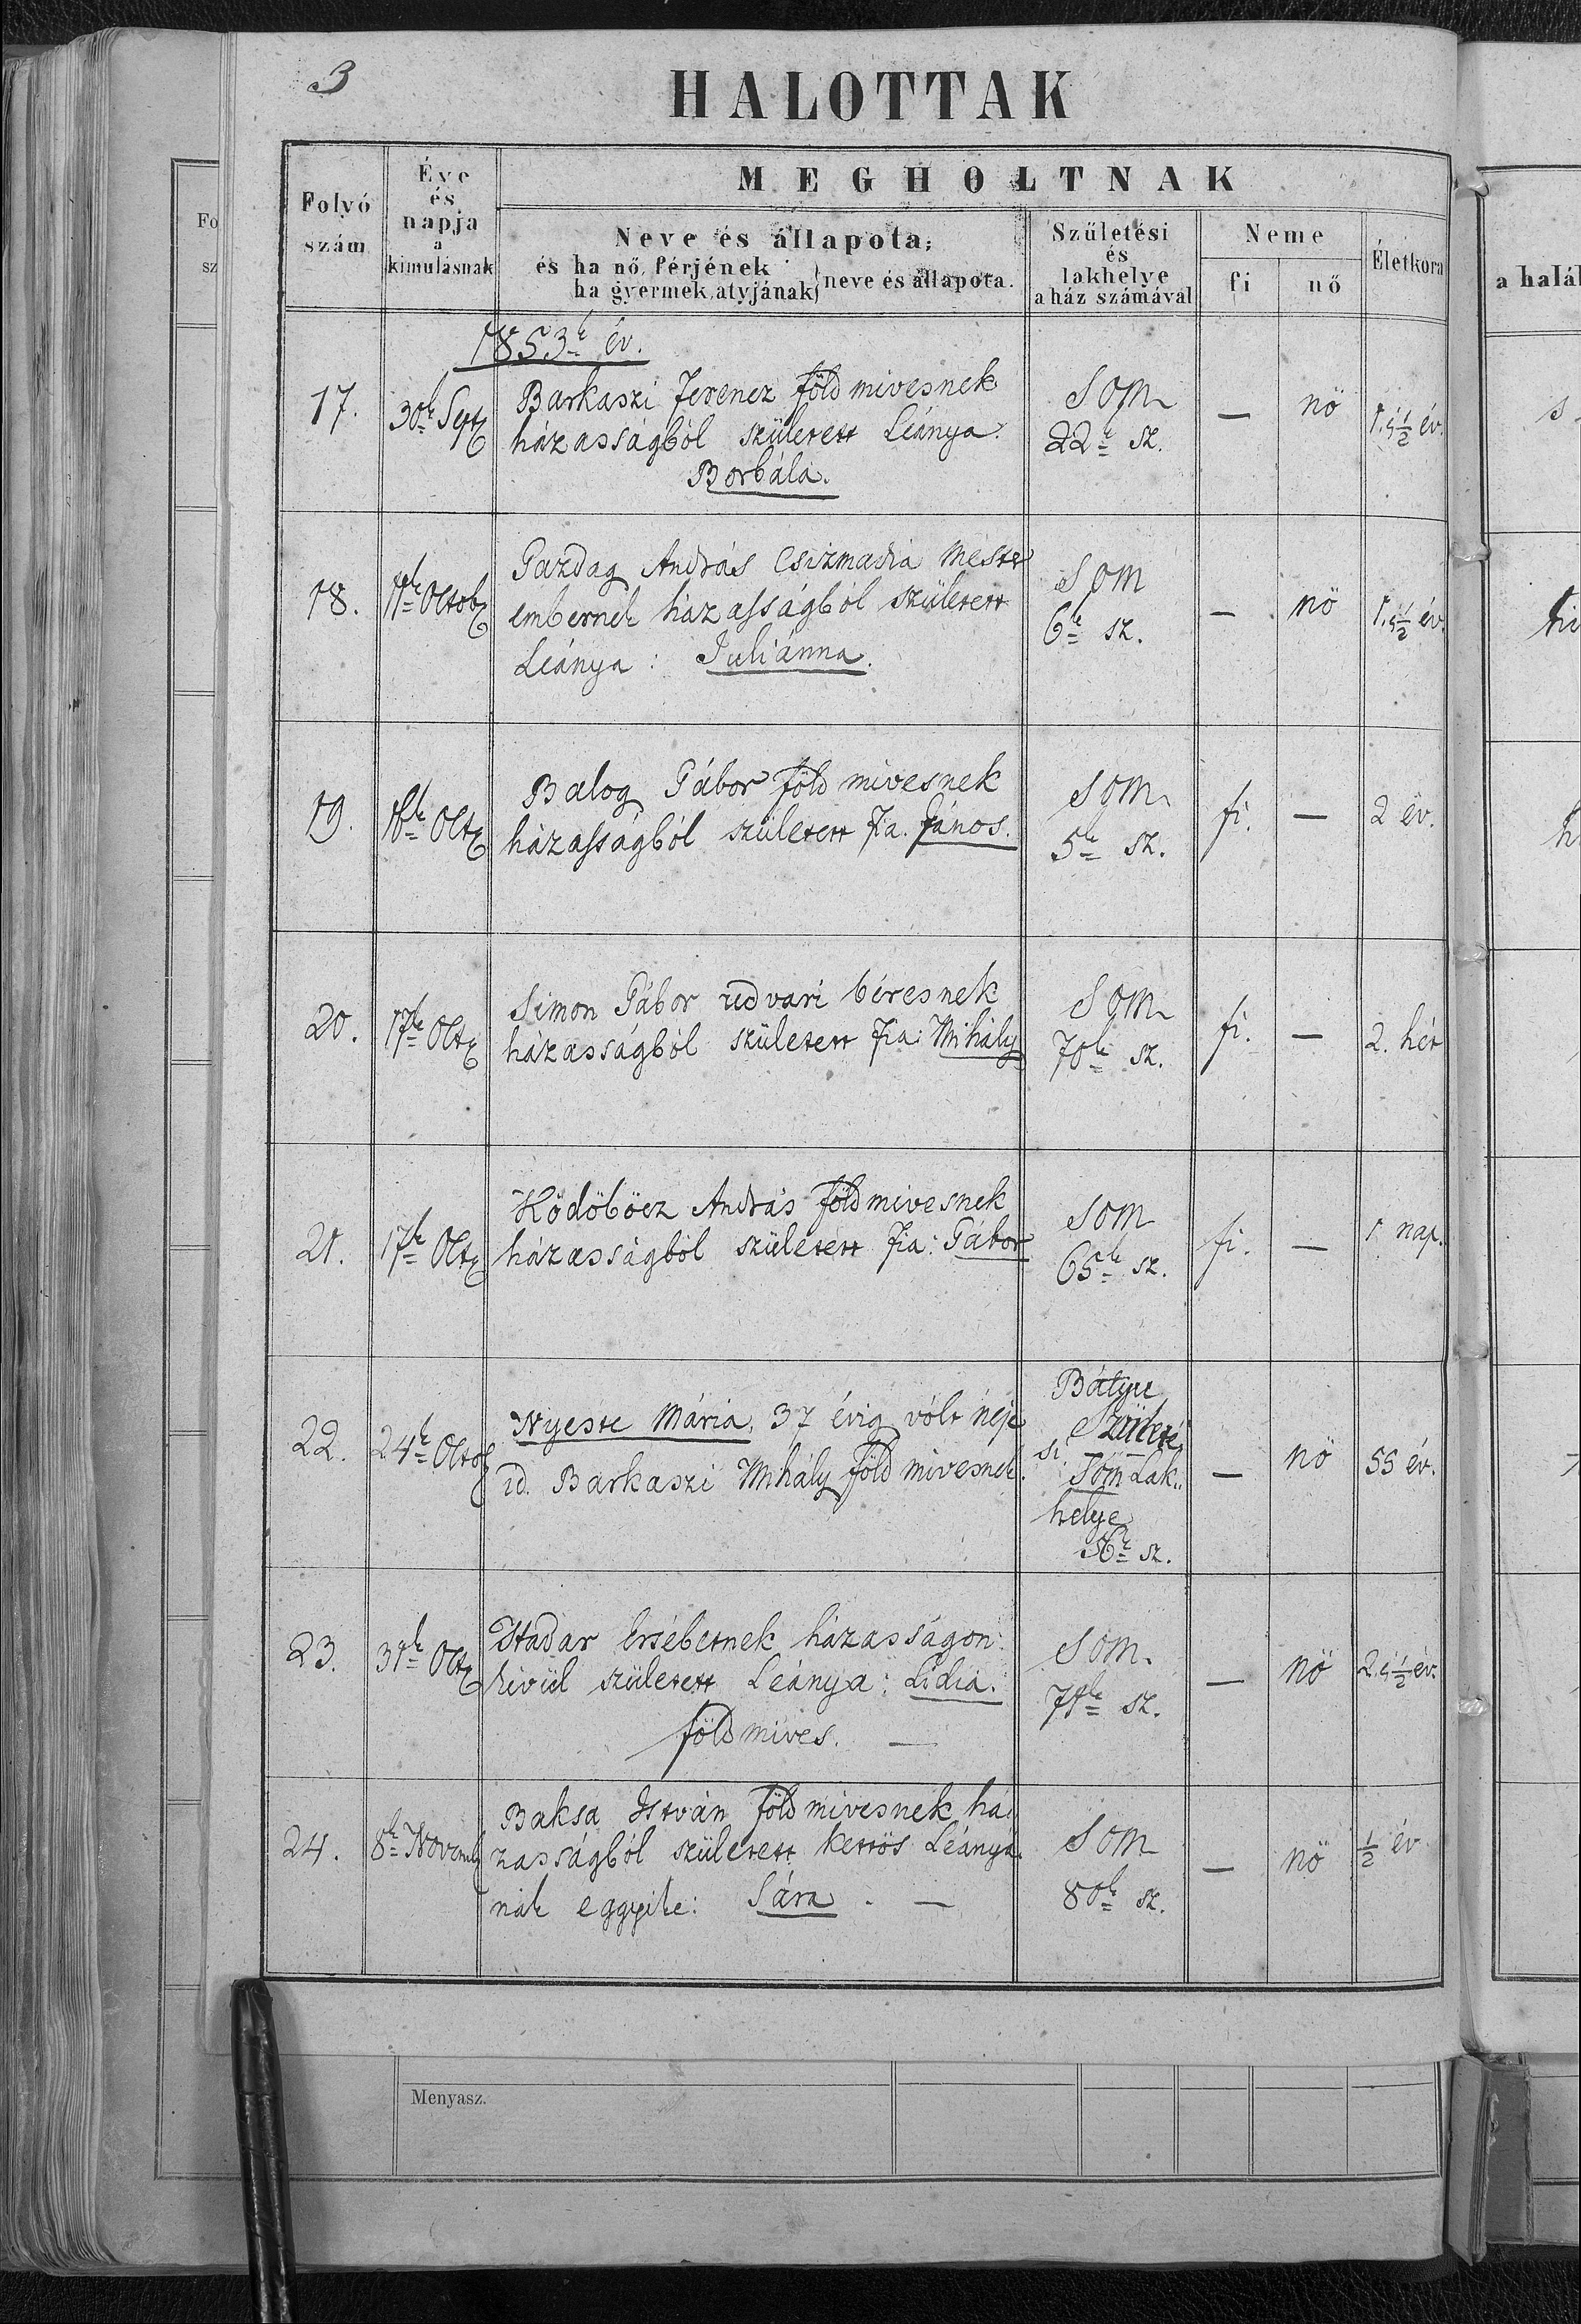 3
HALOTTAK
Folyó szám
Éve és napja a kimulásnak
MEGHOLTNAK
Neve és állapota;
és ha nő, férjének
ha gyermek, atyjának
neve és állapota.
Születési
és
lakhelye
a ház számával
Neme
fi
nő
Életkora
a halál
Fo
sz
1853k év.
17.
30k Sept
Barkaszi Ferencz földmivesnek
házasságból született Leánya.
Borbála.
Som
22k sz.
—
nö
1. és ½ év.
18.
11k Octob
Gazdag András Csizmadia Mester
embernek házasságból született
Leánya: Juliánna.
Som
6k sz.
—
nö
1. és ½ év.
19.
Oct
Balog Gábor földmivesnek
házasságból született fia. János.
Som
5k sz.
fi.
—
2 év.
20.
17k Oct
Simon Gábor udvari béresnek
házasságból született fia: Mihály
Som
70k sz.
fi.
—
2. hét
21.
17k Oct
Ködöböcz András földmivesnek
házasságból született fia: Gábor
Som
65k sz.
fi.
—
1 nap.
22.
24k Octob
Nyeste Mária, 37 évig vólt néje
id. Barkaszi Mihály földmivesnek.
Bátyu
Születé
si.
Som Lak
helye
56k sz.
—
nö
55 év.
23.
31k Oct
Hadar Ersébetnek házasságon
kivül született Leánya: Lidia.
földmives. —
Som.
71k sz.
—
nö
2. és ½ év.
24.
8k Novemb
Baksa István földmivesnek há
zasságból született kettös Leányá
nak eggyike: Sára. —
Som
80k sz.
—
nö
½ év
Menyasz.